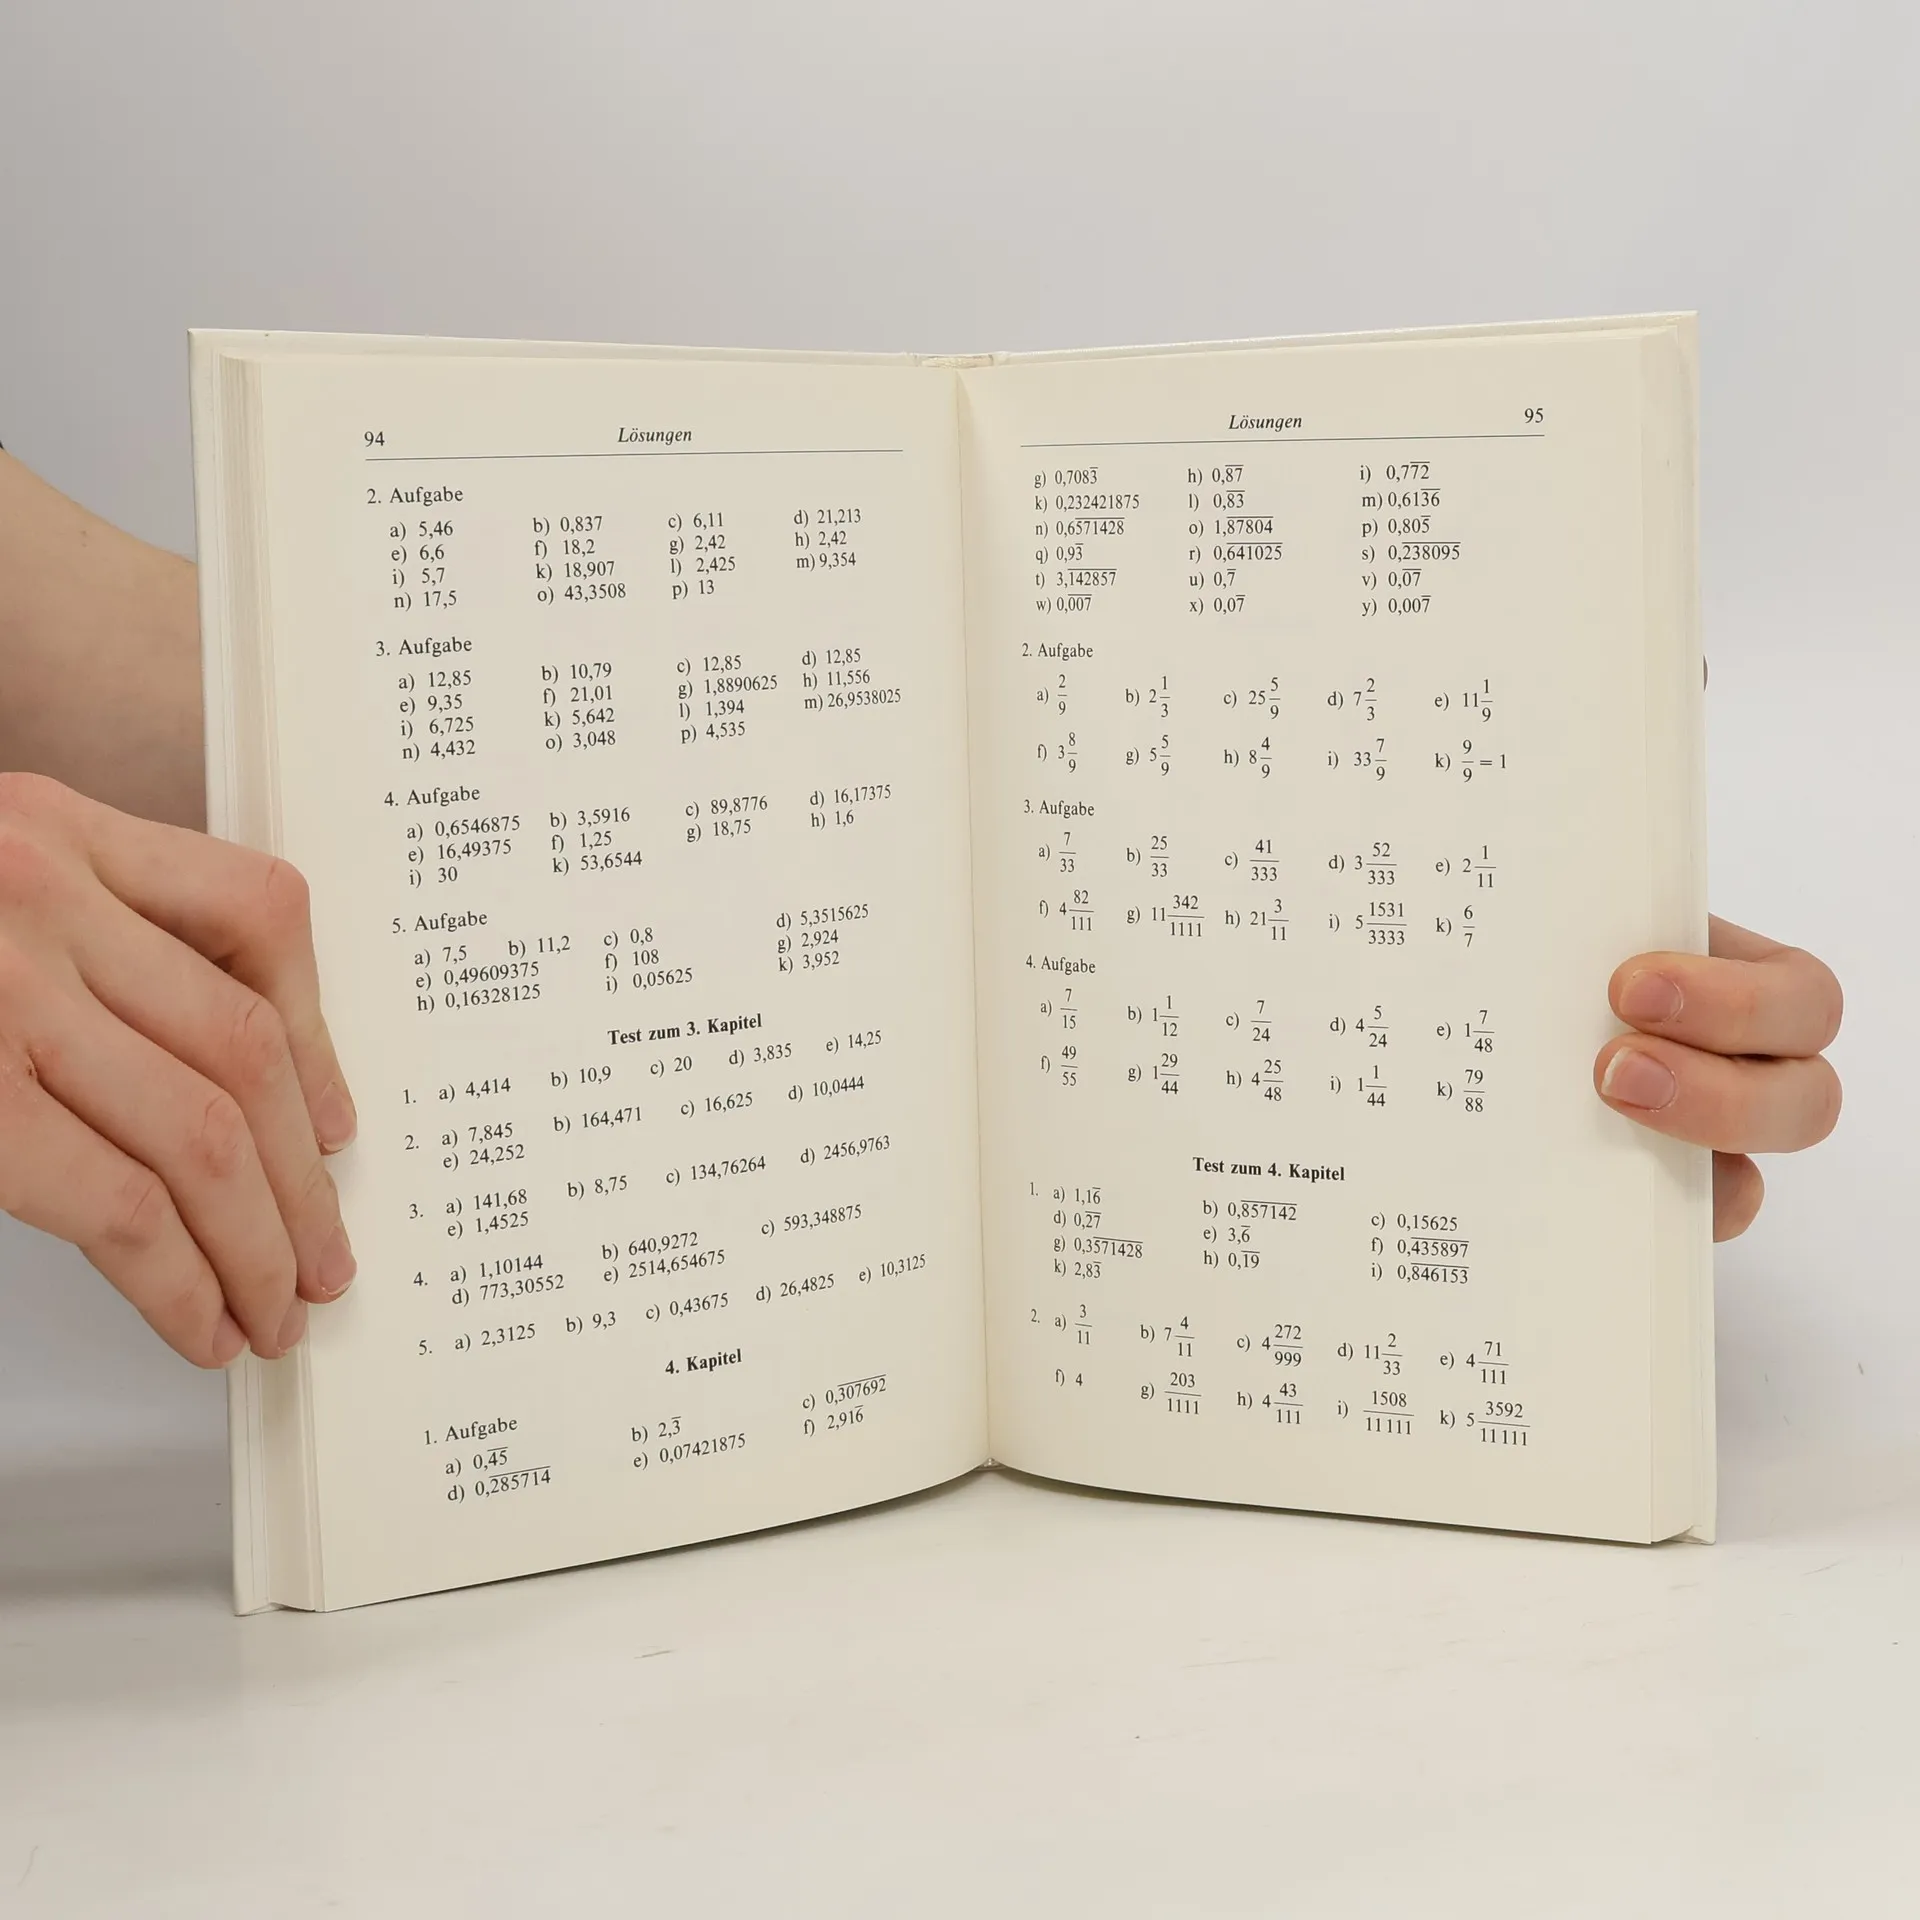 94 Lösungen
2. Aufgabe
a) 5,46 b) 0,837 c) 6,11 d) 21,213
e) 6,6 f) 18,2 g) 2,42 h) 2,42
i) 5,7 k) 18,907 l) 2,425 m) 9,354
n) 17,5 o) 43,3508 p) 13
3. Aufgabe
a) 12,85 b) 10,79 c) 12,85 d) 12,85
e) 9,35 f) 21,01 g) 1,8890625 h) 11,556
i) 6,725 k) 5,642 l) 1,394 m) 26,9538025
n) 4,432 o) 3,048 p) 4,535
4. Aufgabe
a) 0,6546875 b) 3,5916 c) 89,8776 d) 16,17375
e) 16,49375 f) 1,25 g) 18,75 h) 1,6
i) 30 k) 53,6544
5. Aufgabe
a) 7,5 b) 11,2 c) 0,8 d) 5,3515625
e) 0,49609375 f) 108 g) 2,924
h) 0,16328125 i) 0,05625 k) 3,952
Test zum 3. Kapitel
1. a) 4,414 b) 10,9 c) 20 d) 3,835 e) 14,25
2. a) 7,845 b) 164,471 c) 16,625 d) 10,0444
e) 24,252
3. a) 141,68 b) 8,75 c) 134,76264 d) 2456,9763
e) 1,4525
4. a) 1,10144 b) 640,9272 c) 593,348875
d) 773,30552 e) 2514,654675
5. a) 2,3125 b) 9,3 c) 0,43675 d) 26,4825 e) 10,3125
4. Kapitel
1. Aufgabe
a) 0,4̅5̅ b) 2,3̅ c) 0,3̅0̅7̅6̅9̅2̅
d) 0,2̅8̅5̅7̅1̅4̅ e) 0,07421875 f) 2,916̅
Lösungen 95
g) 0,7083̅ h) 0,8̅7̅ i) 0,77̅2̅
k) 0,232421875 l) 0,8̅3̅ m) 0,613̅6̅
n) 0,65̅7̅1̅4̅2̅8̅ o) 1,8̅7̅8̅0̅4̅ p) 0,805̅
q) 0,93̅ r) 0,6̅4̅1̅0̅2̅5̅ s) 0,2̅3̅8̅0̅9̅5̅
t) 3,1̅4̅2̅8̅5̅7̅ u) 0,7̅ v) 0,0̅7̅
w) 0,0̅0̅7̅ x) 0,07̅ y) 0,007̅
2. Aufgabe
a) 2/9 b) 2 1/3 c) 25 5/9 d) 7 2/3 e) 11 1/9
f) 3 8/9 g) 5 5/9 h) 8 4/9 i) 33 7/9 k) 9/9 = 1
3. Aufgabe
a) 7/33 b) 25/33 c) 41/333 d) 3 52/333 e) 2 1/11
f) 4 82/111 g) 11 342/1111 h) 21 3/11 i) 5 1531/3333 k) 6/7
4. Aufgabe
a) 7/15 b) 1 1/12 c) 7/24 d) 4 5/24 e) 1 7/48
f) 49/55 g) 1 29/44 h) 4 25/48 i) 1 1/44 k) 79/88
Test zum 4. Kapitel
1. a) 1,16̅ b) 0,8̅5̅7̅1̅4̅2̅ c) 0,15625
d) 0,2̅7̅ e) 3,6̅ f) 0,4̅3̅5̅8̅9̅7̅
g) 0,35̅7̅1̅4̅2̅8̅ h) 0,1̅9̅ i) 0,8̅4̅6̅1̅5̅3̅
k) 2,83̅
2. a) 3/11 b) 7 4/11 c) 4 272/999 d) 11 2/33 e) 4 71/111
f) 4 g) 203/1111 h) 4 43/111 i) 1508/11 111 k) 5 3592/11 111